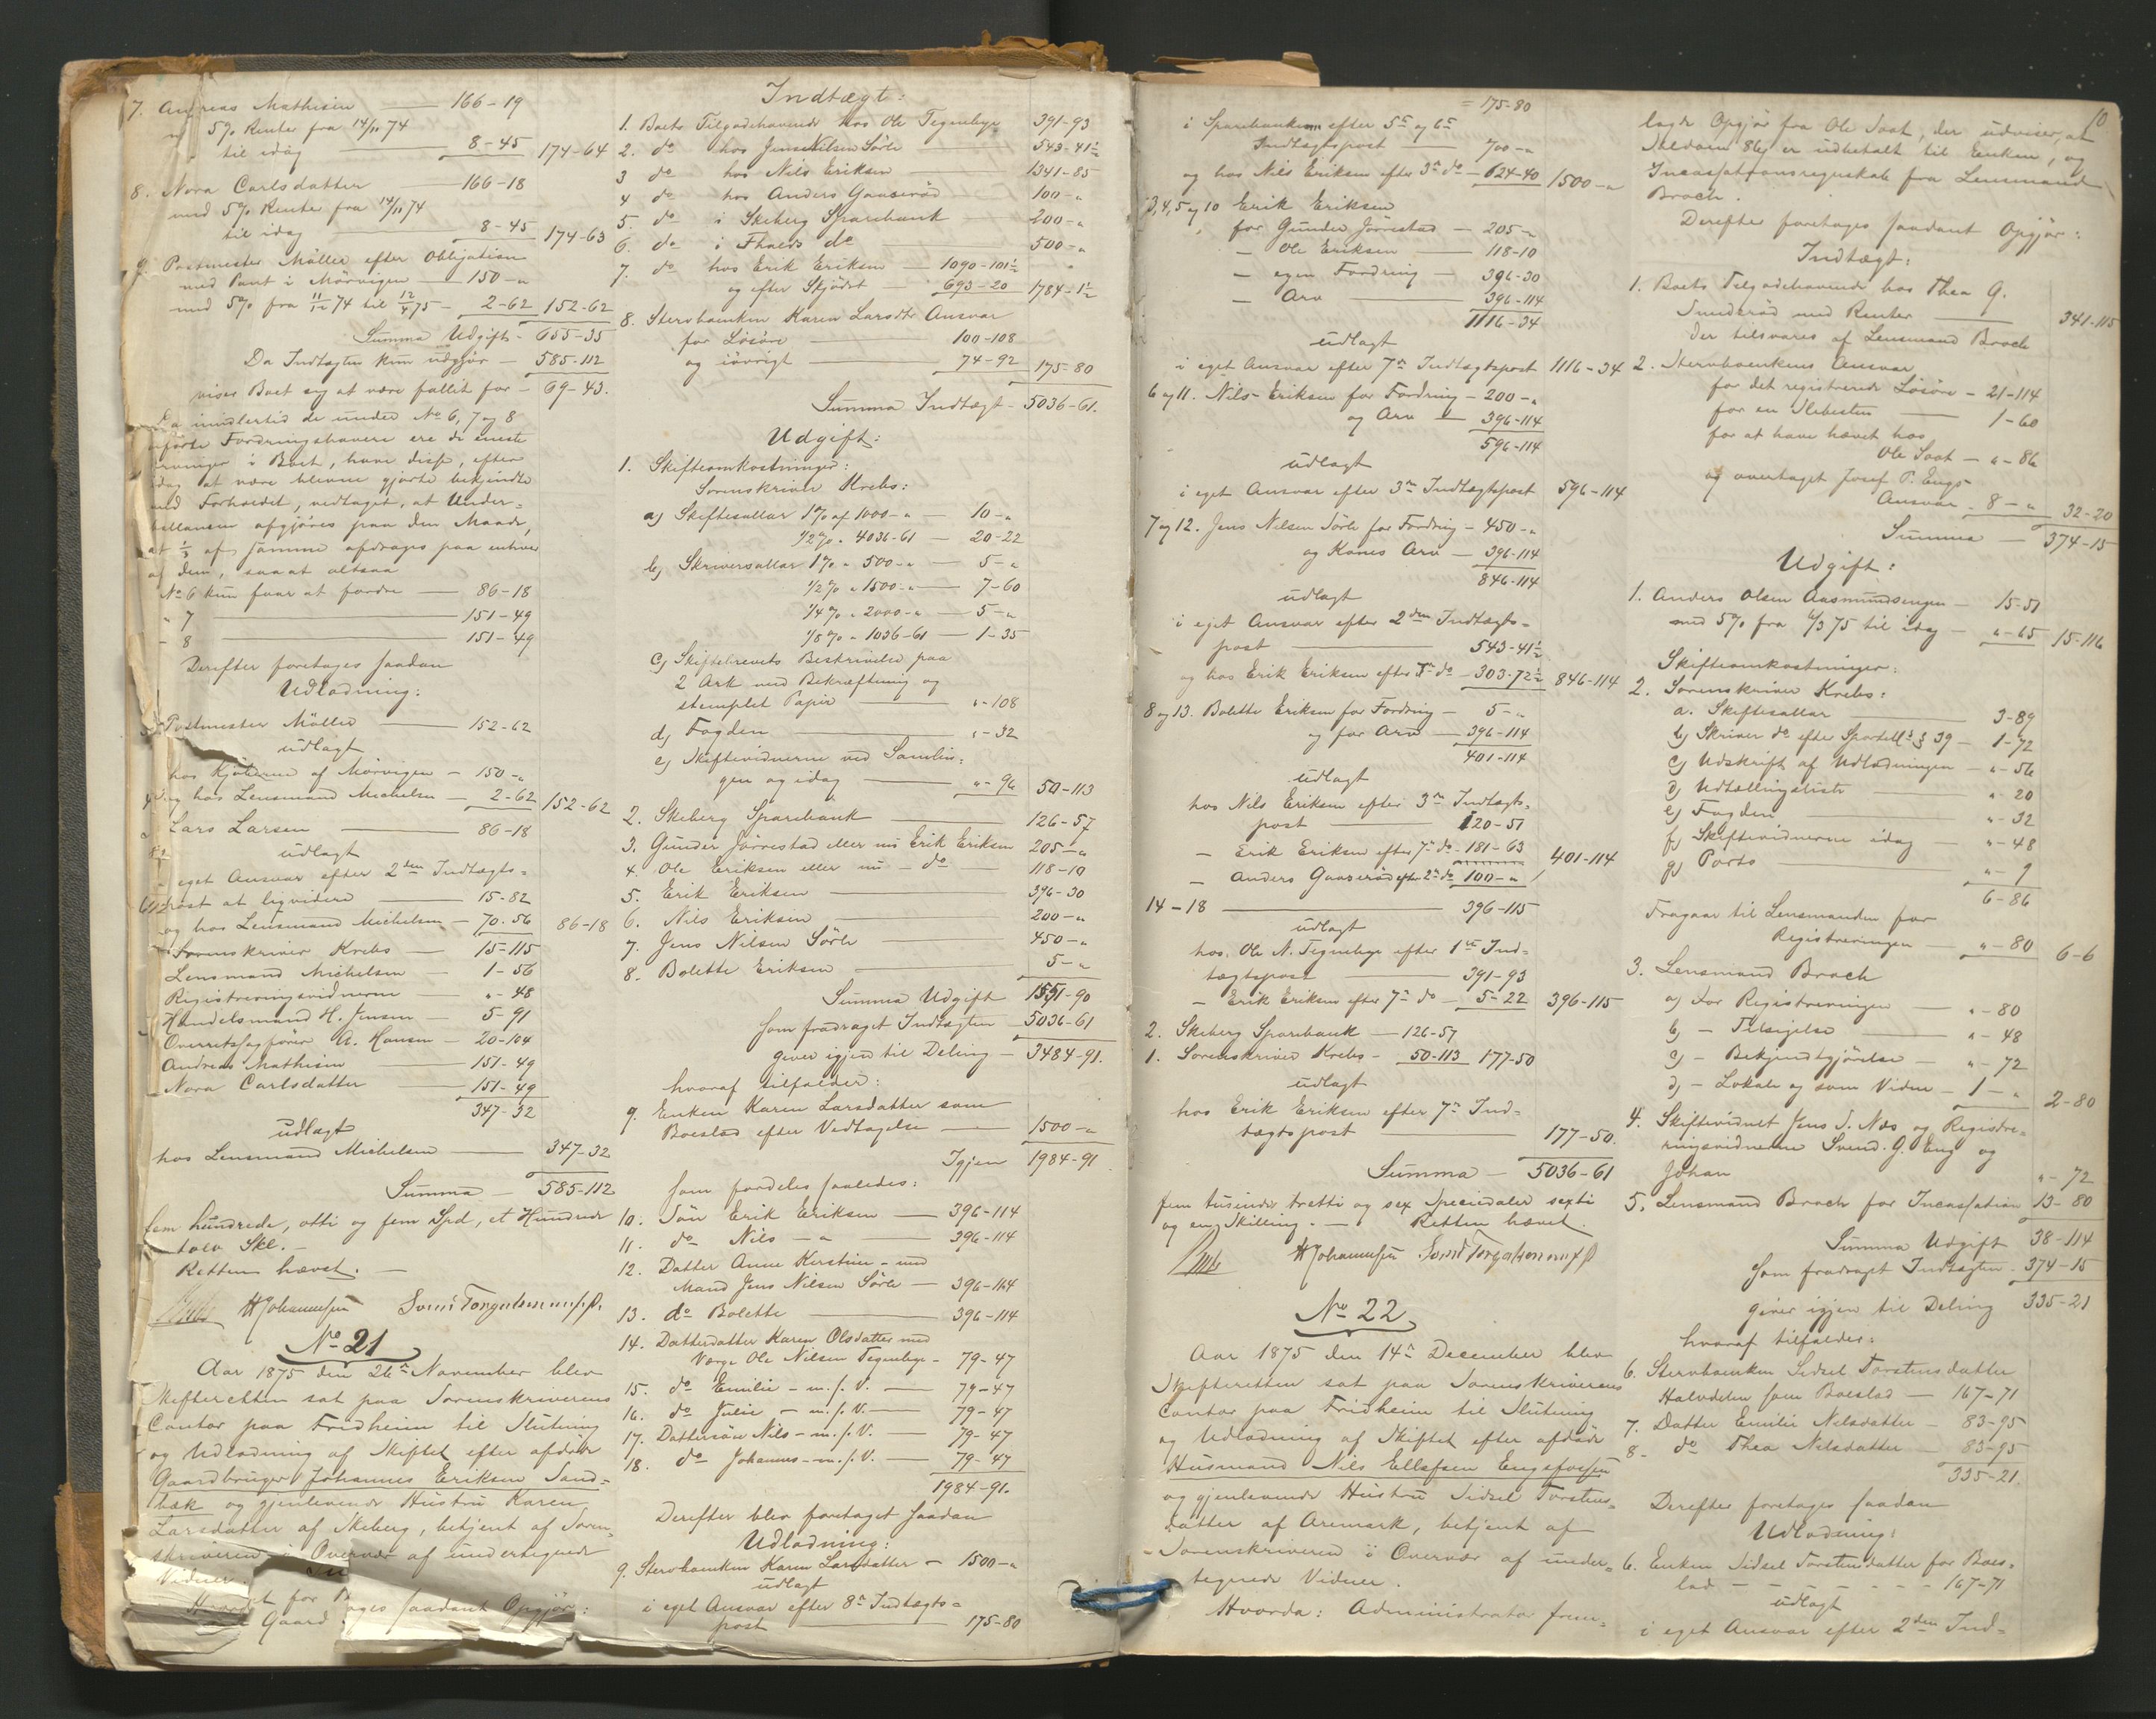 7. Andreas Mathisen — 166-19
m 5% Renter fra 14/11 74
til idag — 8-45 174-64
8. Nora Carlsdatter — 166-18
med 5% Renter fra 14/11 74
til idag — 8-45 174-63
9. Postmester Møller efter Obligation
med Pant i Mörvigen — 150-"
med 5% fra 11/12 74 til 12/4 75 — 2-62 152-62
Summa Udgift - 655-35
Da Indtægten kun udgjør — 585-112
vises Boet sig at være fallit for — 69-43.
Da imidlertid de under No 6, 7 og 8
anførte Fordringshavere ere de eneste
Arvinger i Boet, have disse, efter
idag at være blevne gjorte bekjendte
med Forholdet, vedtaget, at Under-
ballancen afgjöres paa den Maade,
at 1/3 af samme afdrages paa enhver
af dem, saa at altsaa
No 6 kun faar at fordre — 86-18
" 7 — 151-49
- 8 — 151-49
Derefter foretages saadan
Udlodning:
Postmester Møller — 152-62
udlagt
hos Kjøberne af Mörvigen — 150-"
og hos Lensmand Michelsen — 2-62 152-62
Lars Larsen — 86-18
udlagt
i eget Ansvar efter 2den Indtægts-
post at liqvidere — 15-82
og hos Lensmand Michelsen — 70-56 86-18
Sorenskriver Krebs — 15-115
Lensmand Michelsen — 1-56
Registreringsvidnerne — "-48
Handelsmand H. Jensen — 5-91
Overretssagfører A. Hansen — 20-104
Andreas Mathisen — 151-49
Nora Carlsdatter — 151-49
347-32
udlagt
hos Lensmand Michelsen — 347-32
Summa — 585-112
fem hundrede, otti og fem Spd, et Hundrede
tolv Skl. —
Retten hævet. —
Krebs H Johannesen Svend Torgalsen m/p.
No 21
Aar 1875 den 26de November blev
Skifteretten sat paa Sorenskriverens
Contor paa Fridheim til Slutning
og Udlodning af Skiftet efter afdøde
Gaardbruger Johannes Eriksen Sand-
bæk og gjenlevende Hustru Karen
Larsdatter af Skeberg, betjent af Soren-
skriveren i Overvær af undertegnede
Vidner.
ages saadant Opgjør:
Gaard
Indtægt:
1. Boets Tilgodehavende hos Ole Tegneby 391-93
2. do hos Jens Nilsen Sörli — 543-41½
3 do hos Nils Eriksen — 1341-85
4 do hos Anders Gaaseröd 100-"
5. do i Skeberg Sparebank — 200-"
6. do i Thrads do — 500-"
7. do hos Erik Eriksen — 1090-101½
og efter Skjødet — 693-20 1784-1½
8. Stervboenken Karen Larsdtr Ansvar
for Lösöre — 100-108
og iövrigt — 74-92 175-80
Summa Indtægt - 5036-61.
Udgift:
1. Skifteomkostninger:
Sorenskriver Krebs:
a) Skiftesallar 1% af 1000-" — 10-"
1/2% " 4036-61 — 20-22
b) Skriversallar 1% " 500-" — 5-"
1/2% " 1500-" — 7-60
1/4% " 2000-" — 5-"
1/8% " 1036-61 — 1-35
c) Skiftebrevets Beskrivelse paa
2 Ark med Bekræftning og
stemplet Papir — "-108
d) Fogden — "-32
e) Skiftevidnerne ved Samlin-
gen og idag — "-96 50-113
2. Skeberg Sparebank — 126-57
3. Gunder Jörrestad eller nu Erik Eriksen 205-"
4. Ole Eriksen eller nu - do — 118-10
5. Erik Eriksen — 396-30
6. Nils Eriksen — 200-"
7. Jens Nilsen Sörli — 450-"
8. Bolette Eriksen — 5-"
Summa Udgift 1551-90
som fradraget Indtægten — 5036-61
giver igjen til Deling — 3484-91.
hvoraf tilfalder:
9. Enken Karen Larsdatter som
Boeslod efter Vedtagelse — 1500-"
Igjen 1984-91
som fordeles saaledes:
10. Søn Erik Eriksen — 396-114
11. do Nils — " 396-114
12. Datter Anne Kirstine - med
Mand Jens Nilsen Sörli — 396-114
13. do Bolette — 396-114
14. Datterdatter Karen Olsdatter med
Værge Ole Nilsen Tegneby — 79-47
15. do Emilie - m. s. V. — 79-47
16. do Julie - m. s. V. — 79-47
17. Dattersøn Nils - m. s. V. — 79-47
18. do Johannes - m. s. V. — 79-47
1984-91.
Derefter blev foretaget saadan
Udlodning:
9. Stervboenken Karen Larsdatter — 1500-"
udlagt
i eget Ansvar efter 8de Indtægts-
post — 175-80
= 175-80
i Sparebanken efter 5te og 6te
Indtægtspost — 700-"
og hos Nils Eriksen efter 3die do — 624-40 1500-"
3, 4, 5 og 10 Erik Eriksen
for Gunder Jörrestad — 205-"
— Ole Eriksen — 118-10
— egen Fordring — 396-30
— Arv — 396-114
1116-34
udlagt
i eget Ansvar efter 7de Indtægtspost 1116-34
6 og 11. Nils Eriksen for Fordring — 200-"
og Arv — 396-114
596-114
udlagt
i eget Ansvar efter 3die Indtægtspost 596-114
7 og 12. Jens Nilsen Sörli for Fordring — 450-"
og Kones Arv — 396-114
846-114
udlagt
i eget Ansvar efter 2den Indtægts-
post — 543-41½
og hos Erik Eriksen efter 7de do — 303-72½ 846-114
8 og 13. Bolette Eriksen for Fordring — 5-"
og for Arv — 396-114
401-114
udlagt
hos Nils Eriksen efter 3die Indtægts-
post — 120-51
— Erik Eriksen efter 7de do — 181-63
— Anders Gaaseröd efter 2de do 100-" 401-114
14-18 — 396-115
udlagt
hos Ole N. Tegneby efter 1ste Ind-
tægtspost — 391-93
— Erik Eriksen efter 7de do — 5-22 396-115
2. Skeberg Sparebank — 126-57
1. Sorenskriver Krebs — 50-113 177-50
udlagt
hos Erik Eriksen efter 7de Ind-
tægtspost — 177-50.
Summa — 5036-61
fem tusinde tretti og sex Speciedaler sexti
og en Skilling. — Retten hævet.
Krebs H Johannesen Svend Torgalsen m/p
No 22
Aar 1875 den 14de December blev
Skifteretten sat paa Sorenskriverens
Contor paa Fridheim til Slutning
og Udlodning af Skiftet efter afdøde
Husmand Nils Ellefsen Engsfossen
og gjenlevende Hustru Sidsel Torstens-
datter af Aremark, betjent af
Sorenskriveren i Overvær af under-
tegnede Vidner.
Hvorda: Administrator frem-
10
lagde Opgjør fra Ole Soot, der udviser, at
Saldoen 86 s er udbetalt til Enken, og
Incassationsregnskab fra Lensmand
Broch.
Derefter foretages saadant Opgjør:
Indtægt:
1. Boets Tilgodehavende hos Thea G.
Sunderöd med Renter — 341-115
der tilsvares af Lensmand Broch
2. Stervboenkens Ansvar
for det registrerede Lösöre — 21-114
for en Slibesten — 1-60
for at have hævet hos
Ole Soot — "-86
og overtaget Josef P. Engs-
Ansvar — 8-" 32-20
Summa — 374-15
Udgift:
1. Anders Olsen Aasmundsengen — 15-51
med 5% fra 6/3 75 til idag — "-65 15-116
Skifteomkostninger:
2. Sorenskriver Krebs:
a. Skiftesallar — 3-89
b) Skriver do efter Sportell. § 39 — 1-72
c) Udskrift af Udlodningen — "-56
d) Udtællingsliste — "-20
e) Fogden — "-32
f) Skiftevidnerne idag — "-48
g) Porto — "-9
6-86
Fragaar til Lensmanden for
Registreringen — "-80 6-6
3. Lensmand Broch
a) For Registreringen — "-80
b) — Tilsigelse — "-48
c) — Bekjendtgjørelse — "-72
d) — Lokale og som Vidne — 1-" 2-80
4. Skiftevidnet Jens S. Næs og Registre-
ringsvidnerne Svend. G. Eng og
Johan "-72
5. Lensmand Broch for Incassation 13-80
Summa Udgift 38-114
som fradraget Indtægten — 374-15
giver igjen til Deling 335-21
hvoraf tilfalder:
6. Stervboenken Sidsel Torstensdatter
Halvdelen som Boeslod — 167-71
7. Datter Emilie Nilsdatter — 83-95
8- do Thea Nilsdatter — 83-95
335-21.
Derefter foretages saadan
Udlodning:
6. Enken Sidsel Torstensdatter for Boes-
lod — 167-71
udlagt
i eget Ansvar efter 2den Ind-